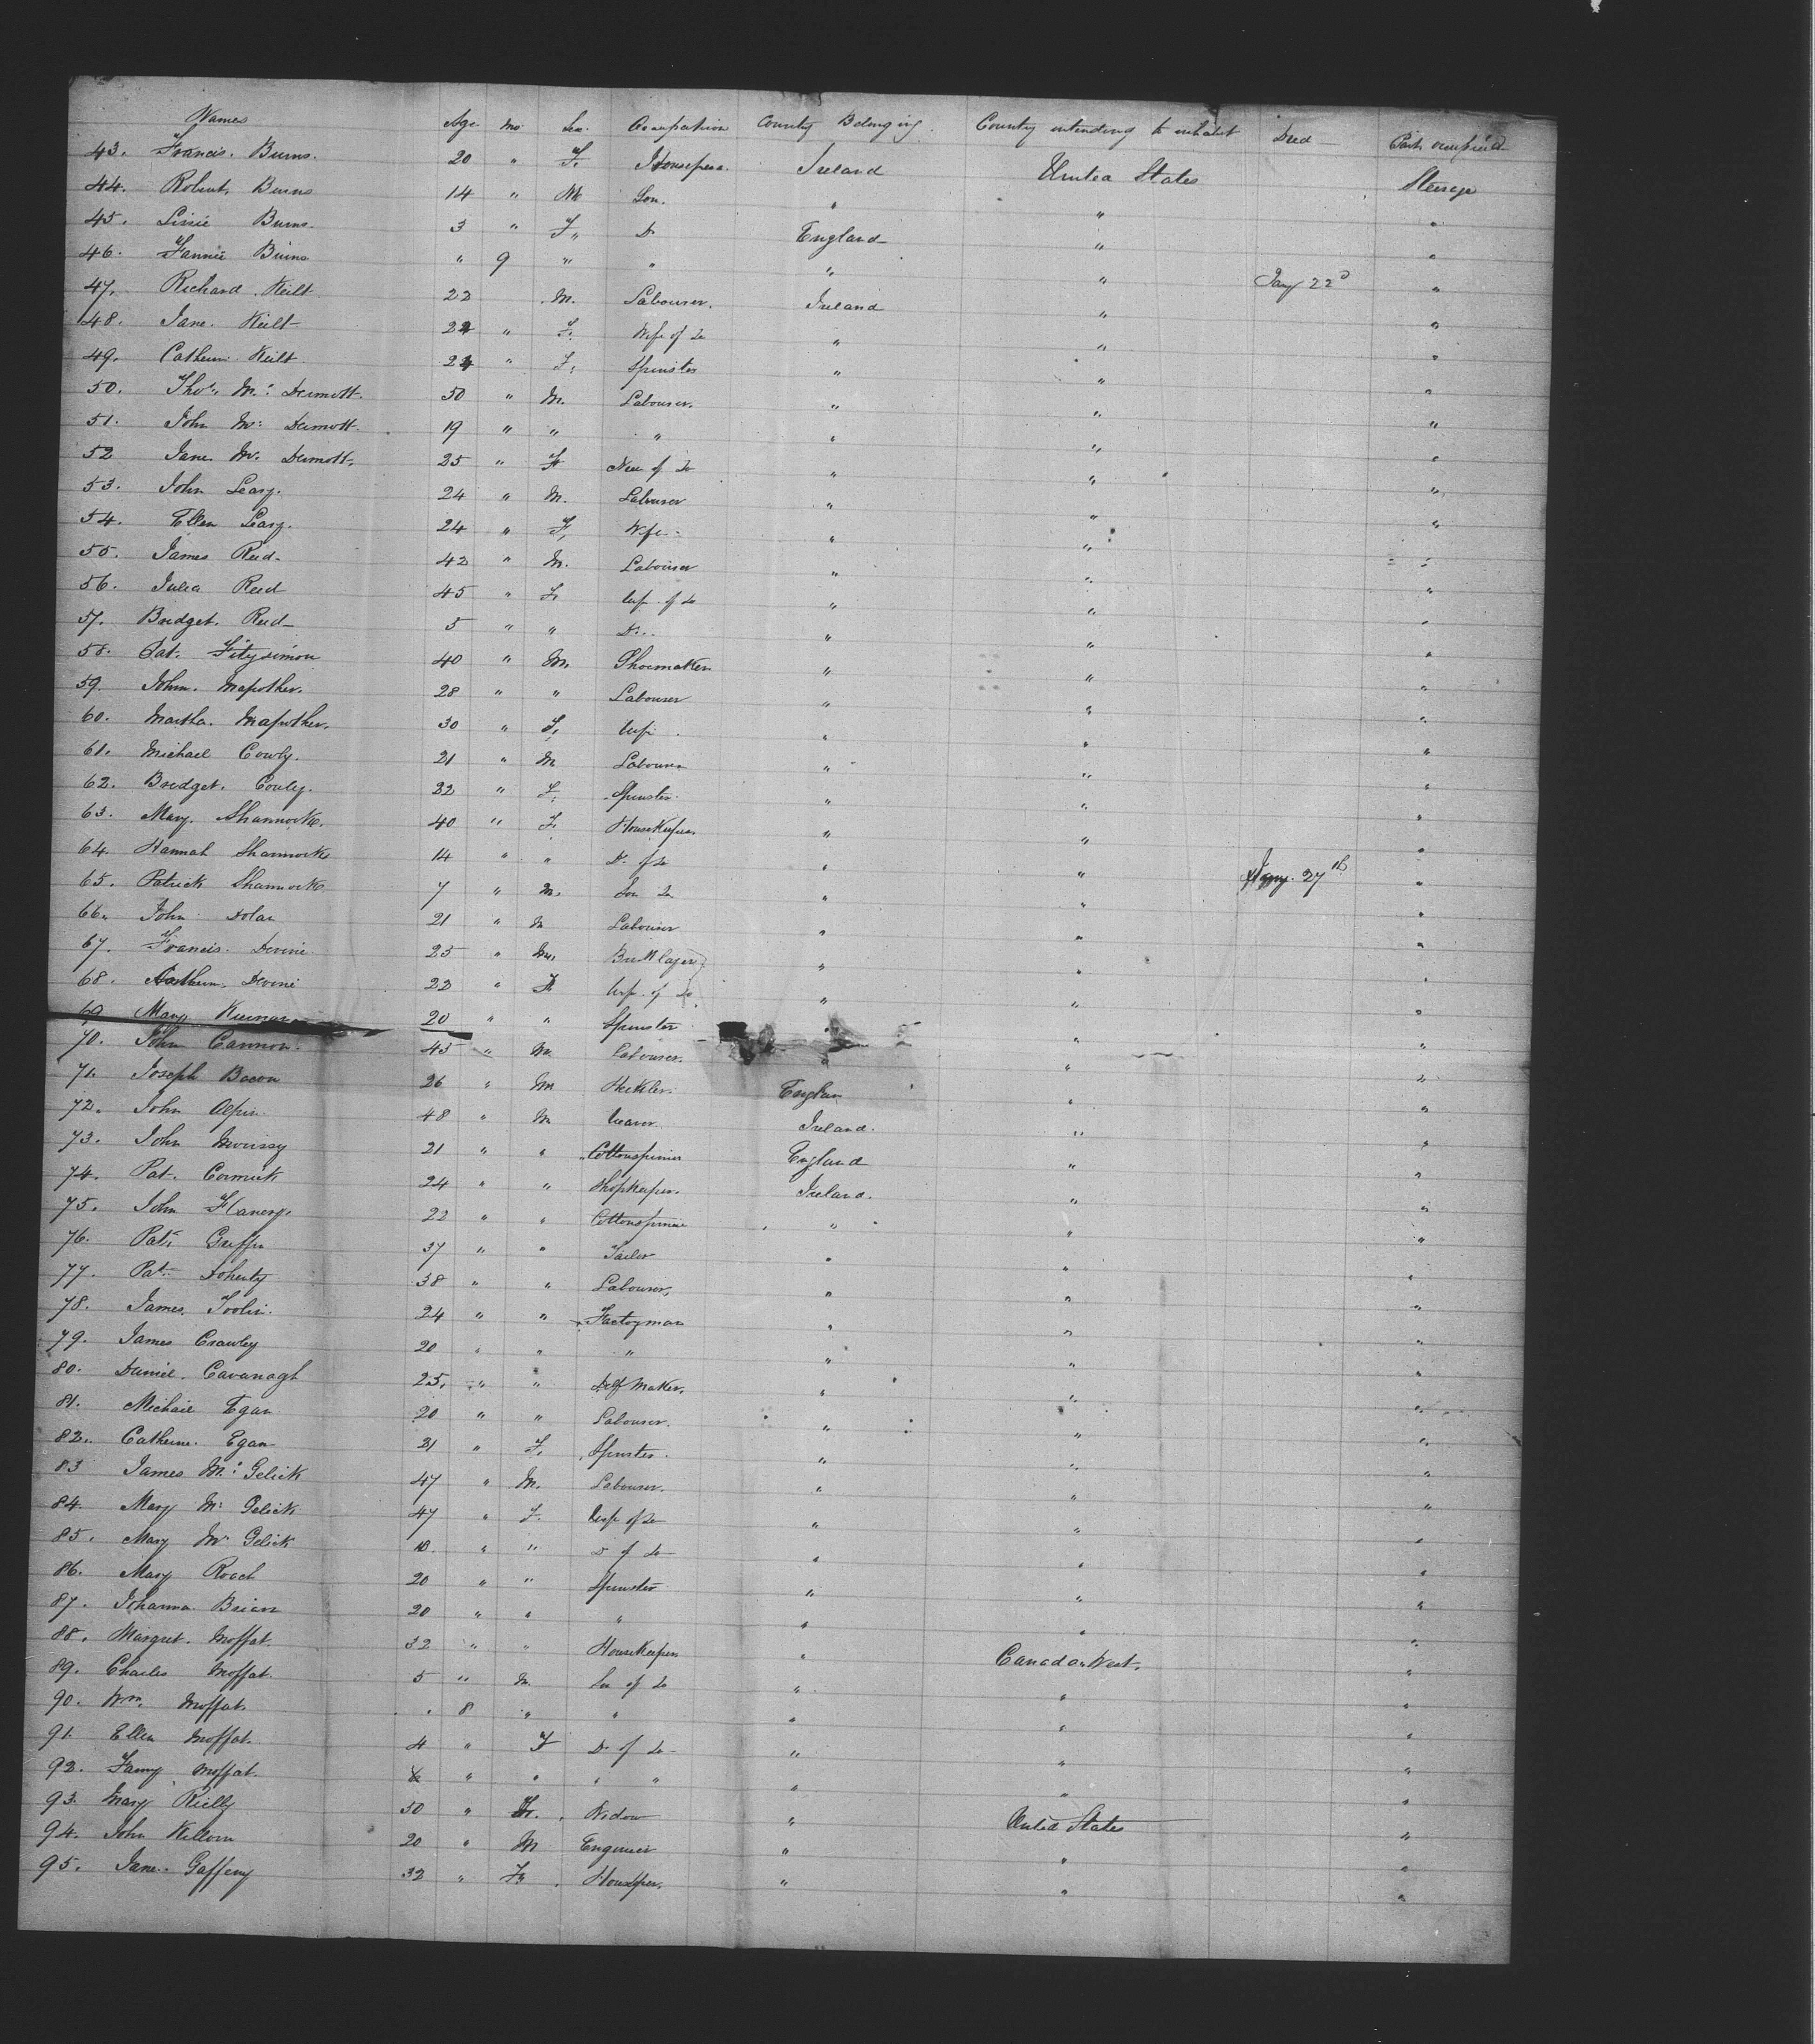 Names Age Mo Sex Occupation County Belonging County intending to inhabit Died Part occupied
43. Francis. Burns. 20 " F. Housepera. Ireland United States Steerage
44. Robert. Burns 14 " M Son. " " "
45. Lissie Burns. 3 " F. D England " "
46. Fannie Burns " 9 " " " " Jany 22d "
47. Richard Keilt 22 M. Labourer. Ireland " "
48. Jane. Keilt 22 " F. Wife of Do " " "
49. Catherin Keilt 24 " F. Spinster " " "
50. Thos. Mc Dermott. 50 " M. Labourer. " " "
51. John Mc Dermott. 19 " " " " " "
52 Jane Mc. Dermott. 25 " F of Do " " "
53. John Leary. 24 " M. Labourer " " "
54. Ellen Leary. 24 " F. Wife " " "
55. James Reed 42 " M. Labourer " " "
56. Julia Reed 45 " F. Wife of Do " " "
57. Bridget. Reed 5 " " D. " " "
58. Pat. Fitzsimon 40 " M. Shoemaker " " "
59. John. Mapother. 28 " " Labourer " " "
60. Martha. Mapother. 30 " F. Wife " " "
61. Michael Cowly. 21 " M Labourer " " "
62. Bridget. Cowly. 22 " F. Spinster. " " "
63. Mary. Shannock. 40 " F. HouseKeeper " " "
64. Hannah Shannock 14 " " D. of Do " " Jany. 27th "
65. Patrick Shannock 7 " M. Son Do " " "
66. John Dolan 21 " M Labourer " " "
67. Francis. Devine. 25 " M. Bricklayer " " "
68. Devine 22 " F Wife of Do " " "
69 Mary 20 " " Spinster " " "
70. John Cannon. 45 " M. Labourer. " " "
71. Joseph Bacon 26 " M Heckler. England " "
72. John Alpin 48 " M Weaver. Ireland. " "
73. John Morrissy 21 " " Cottonspinner England " "
74. Pat. Cormick 24 " " Shopkeeper. Ireland. " "
75. John Flanery. 22 " " Cottonspinner " " "
76. Pat. Griffin 37 " " Tailor " " "
77. Pat. Doherty 38 " " Labourer. " " "
78. James. Toolin. 24 " " Factoryman " " "
79. James Crawley 20 " " " " " "
80. Daniel. Cavanagh 25. " " Maker. " " "
81. Michael Egan 20 " " Labourer. " " "
82. Catherine. Egan 21 " F. Spinster. " " "
83 James Mc Gelick 47 " M. Labourer. " " "
84. Mary Mc Gelick 47 " F. Wife of Do " " "
85. Mary Mc Gelick 10. " " D of Do " " "
86. Mary Roach 20 " " Spinster " " "
87. Johanna Brian 20 " " " " " "
88. Margret. Moffat. 32 " " HouseKeeper " Canada West. "
89. Charles Moffat. 5 " M. Son of Do " " "
90. Wm. Moffat. " 8 " " " " "
91. Ellen Moffat. 4 " F D. of Do " " "
92. Fanny Moffat. " " " " " " "
93. Mary Rielly 50 " F. Widow " United States "
94. John Killorn 20 " M Engineer " " "
95. Jane. Gaffeny 32 " F. Housper. " " "